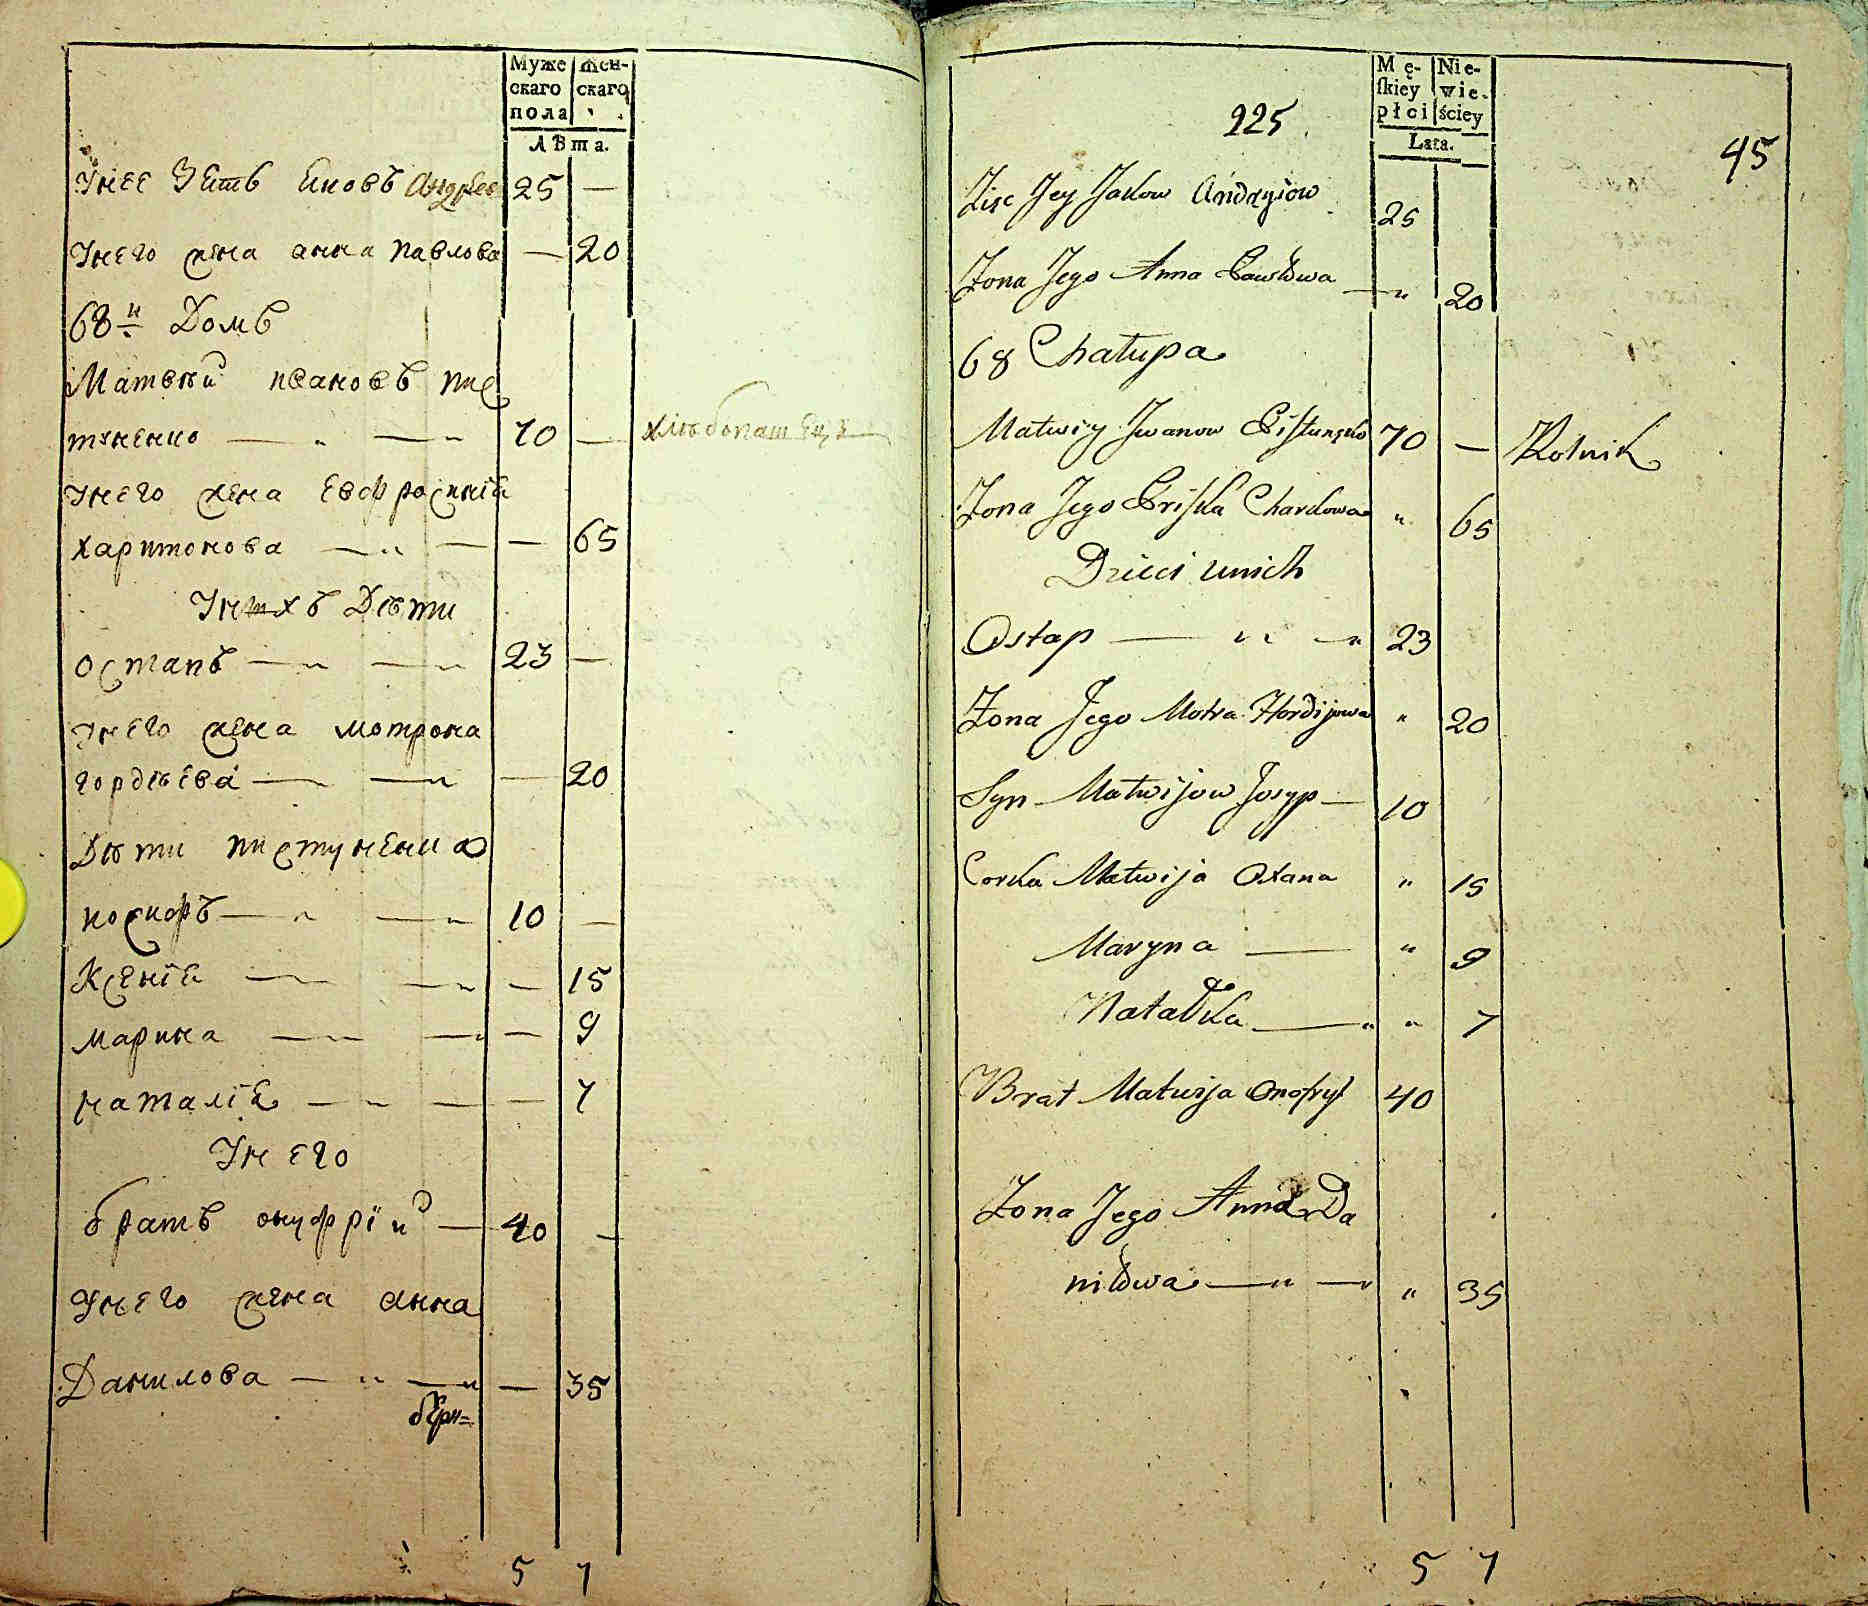 Муже женскаго
скаго скаго
пола
лѣта.
Унее Зеть Яковъ Андреев 25 —
Унего жена анна павлова — 20
68й Домъ
Матвѣй ивановъ пис
туненко — „ — „ 70 — хлѣбопашецъ
Унего жена Евфросинїя
харитонова — „ — — 65
Унихъ Дѣти
остапъ — „ — „ 23 —
Унего жена мотрона
гордѣева — „ — „ — 20
Дѣти пистуненка
иосифъ — „ — „ 10 —
Ксенїя — „ — „ — 15
марина — „ — „ — 9
наталїя — „ — — 7
Унего
братъ онуфрїй — 40 —
Унего жена анна
Данилова — „ — „ — 35
5 7
Mę- Nie-
ſkiey wie-
płci ściey
Lata.
225
45
Zięć Jey Jakow Andryiow 25
Żona Jego Anna Pawłowa — „ 20
68 Chałupa
Matwiy Iwanow Pistunenko 70 — Rolnik
Żona Jego Priska Charkowa „ 65
Dzieci unich
Ostap — „ — „ 23
Żona Jego Motra Hordijowa „ 20
Syn Matwijow Josyp — 10
Corka Matwija Oxana „ 15
Maryna — „ 9
Natałka — „ „ 7
Brat Matwija Onofryi 40
Żona Jego Anna Da
niłowa — „ — „ „ 35
5 7